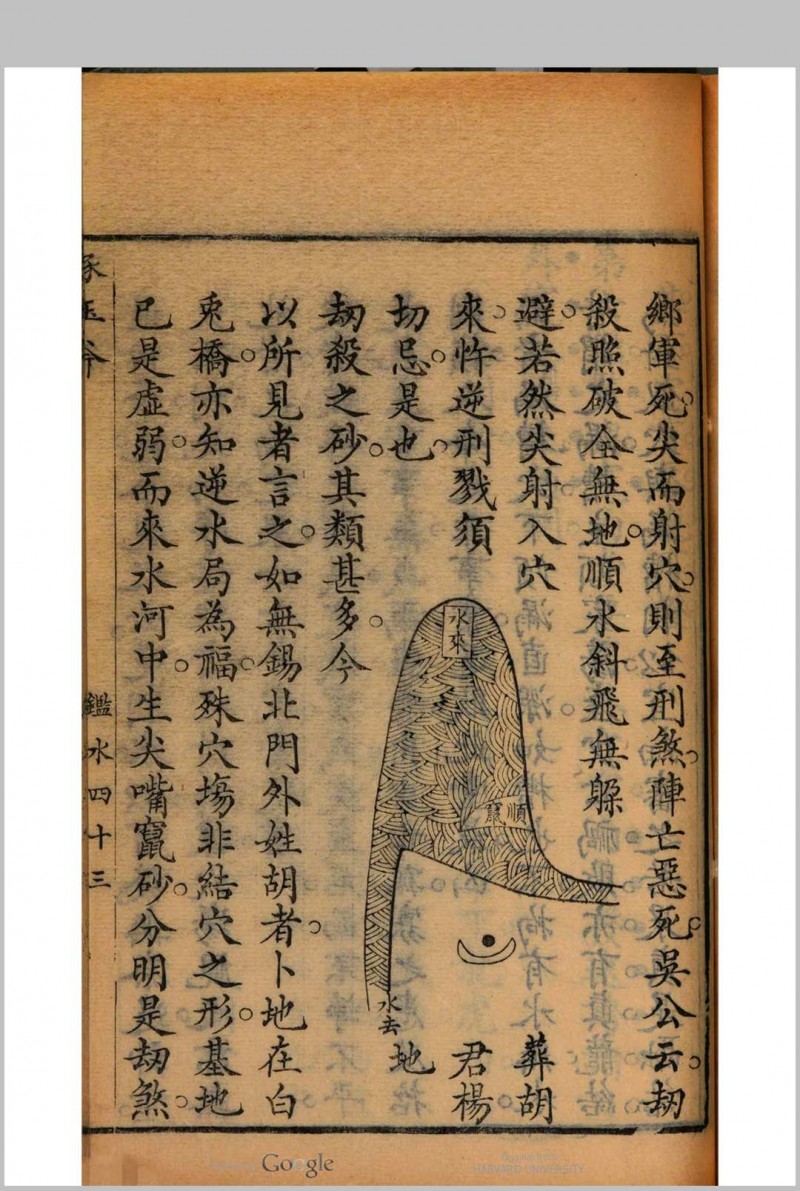 鄉軍死尖而射穴則至刑煞陣亡惡死吳公云刧
殺照破全無地順水斜飛無躱
避若然尖射入穴
來忤逆刑戮須
切忌是也
刧殺之砂其類甚多今
以所見者言之如無錫北門外姓胡者卜地在白
兎橋亦知逆水局為福殊穴塲非結穴之形基地
已是虛弱而來水河中生尖嘴竄砂分明是刧煞
水來
順竄
水去
葬胡
君楊
地
鑑水四十三
Google
Original from
HARVARD UNIVERSITY